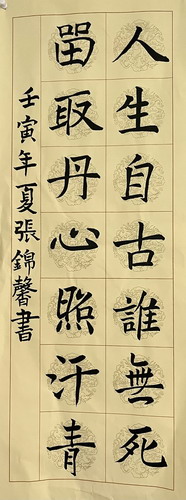 人生自古誰無死
留取丹心照汗青
壬寅年夏張錦馨書